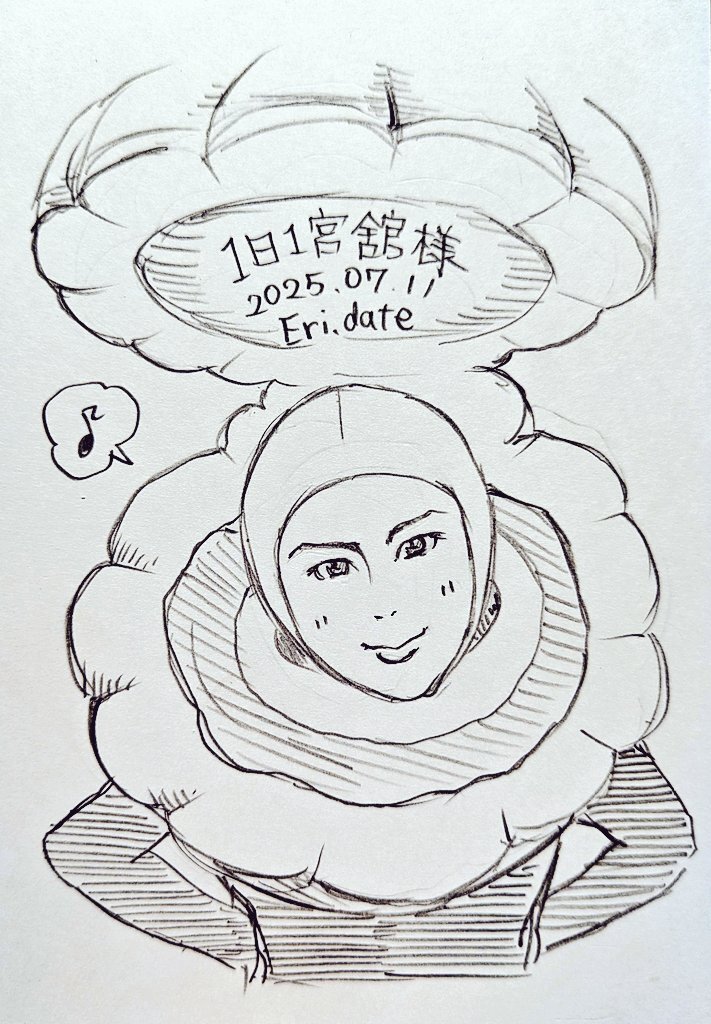 1日1宮舘様
2025.07.11
Eri.date